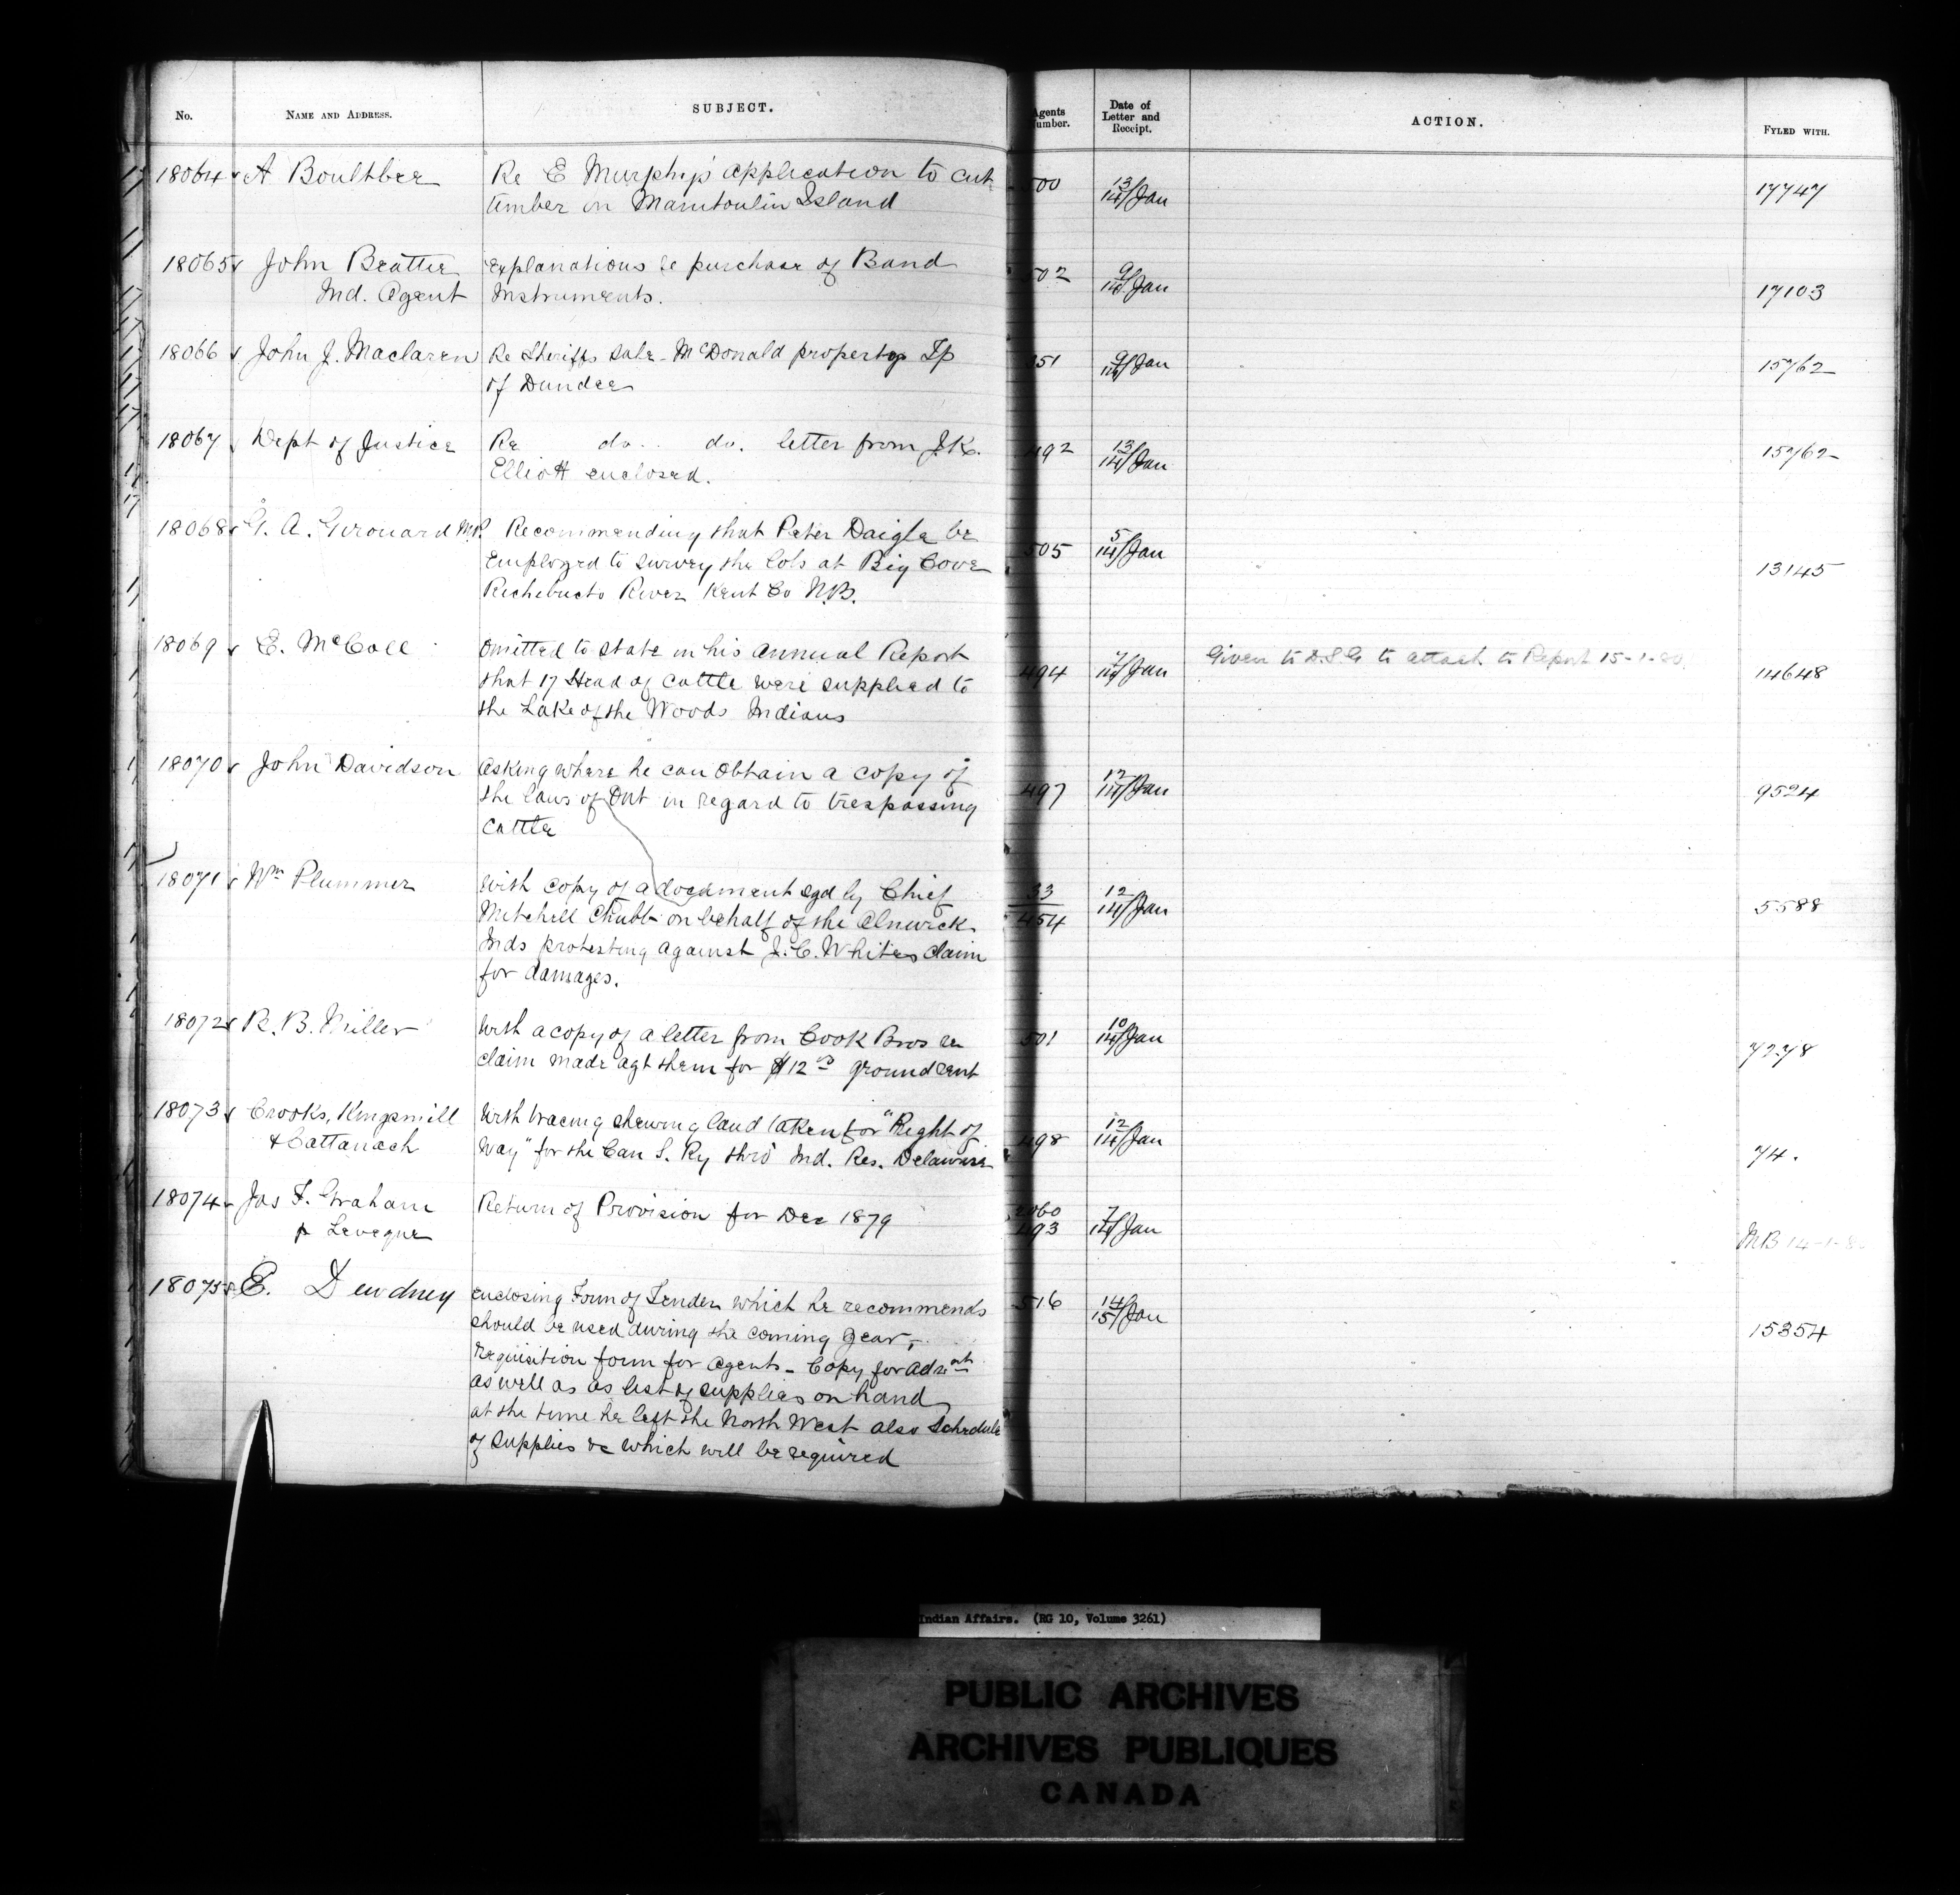 No. NAME AND ADDRESS. SUBJECT. Agents Number. Date of Letter and Receipt. ACTION. FYLED WITH.
18064 A Boultbee Re E Murphy's application to cut 500 13/14/Jan 17747
timber on Manitoulin Island
18065 John Beattie Explanations re purchase of Band 502 9/14/Jan 17103
Ind. Agent Instruments.
18066 John J. Maclaren Re Sheriffs sale - McDonald property Tp 351 9/14/Jan 15762
of Dundee
18067 Dept of Justice Re do. do. letter from J.K. 492 13/14/Jan 15762
Elliott enclosed.
18068 G. A. Girouard M.P. Recommending that Peter Daigle be 505 5/14/Jan 13145
Employed to survey the lots at Big Cove
Richebucto River Kent Co N.B.
18069 E. McColl Omitted to state in his Annual Report 494 7/14/Jan Given to D.S.G to attach to Report 15-1-80. 14648
that 17 Head of Cattle were supplied to
the Lake of the Woods Indians
18070 John Davidson Asking where he can obtain a copy of 497 12/14/Jan 9524
the laws of Ont in regard to trespassing
Cattle
18071 Wm Plummer With copy of a document sgd by Chief 33/454 12/14/Jan 5588
Mitchell Chubb on behalf of the Alnwick
Inds protesting against J. C. Whites claim
for damages.
18072 R. B. Miller With a copy of a letter from Cook Bros re 501 10/14/Jan 7278
claim made agt them for $12 ground rent
18073 Crooks, Kingsmill With tracing shewing land taken for "Right of 498 12/14/Jan 74.
& Cattanach Way" for the Can S. Ry thro' Ind. Res. Delaware
18074 Jas F. Graham Return of Provision for Dec 1879 493 7/14/Jan MB 14-1-8
p Leveque
18075 E. Dewdney enclosing Form of Tender which he recommends 516 14/15/Jan 15354
should be used during the coming year,
requisition form for Agents - Copy for
as well as as list of supplies on hand
at the time he left the North West also Schedule
of supplies &c which will be required
Indian Affairs. (RG 10, Volume 3261)
PUBLIC ARCHIVES
ARCHIVES PUBLIQUES
CANADA